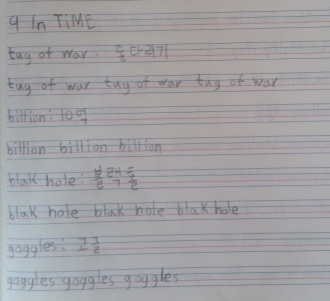 9 In TIME
tug of war : 줄다리기
tug of war tug of war tug of war
billion : 10억
billion billion billion
blak hole : 블랙홀
blak hole blak hole blak hole
goggles : 고글
goggles goggles goggles